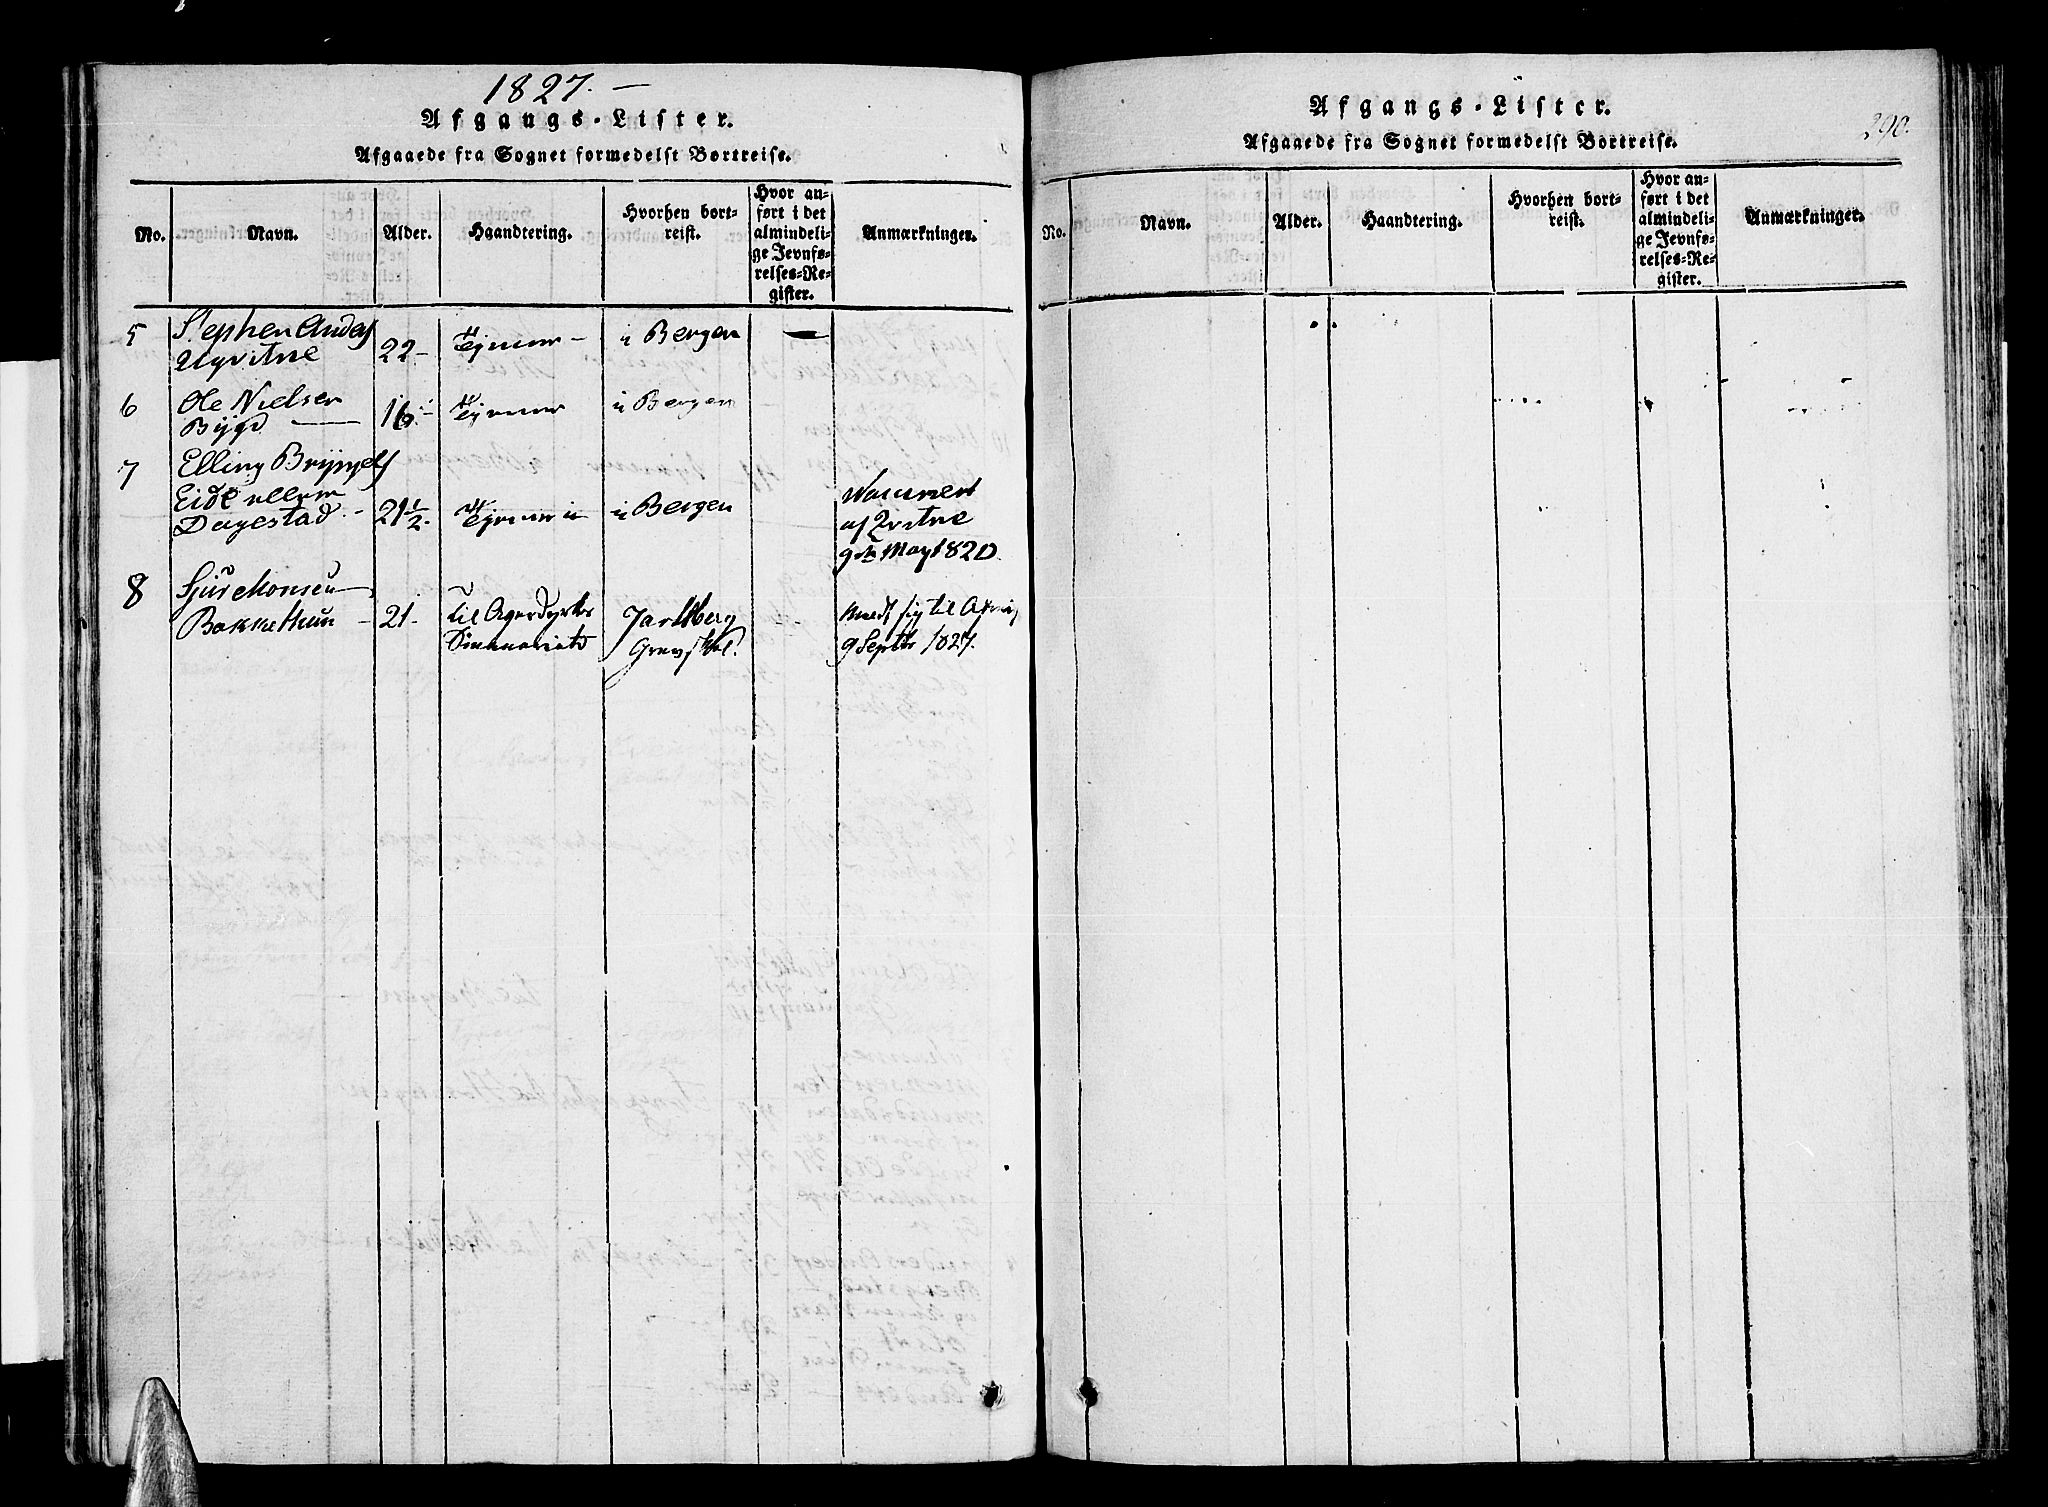 1827.
Afgangs-Lister.
Afgaaede fra Sognet formedelst Bortreise.
No.
Navn.
Alder.
Haandtering.
Hvorhen bort-
reist.
Hvor an-
ført i det
almindeli-
ge Jevnfø-
relses-Re-
gister.
Anmærkninger.
5
Stephen Anders
22
Tjener
i Bergen
6
Ole Nielsen
Bygd
16
Tjener
i Bergen
7
Elling Brynjels
Eide ellern
Dagestad
21 1/2
Tjener
i Bergen
Vaccineret
af
May 1820
8
Sjur Monsen
Bakkethun
21
til Agerdyrker
Seminariet
Jarlsberg
Grevskab
meldt sig til Afgang
9 Septbr 1827.
290.
Afgangs-Lister.
Afgaaede fra Sognet formedelst Bortreise.
No.
Navn.
Alder.
Haandtering.
Hvorhen bort-
reist.
Hvor an-
ført i det
almindeli-
ge Jevnfø-
relses-Re-
gister.
Anmærkninger.